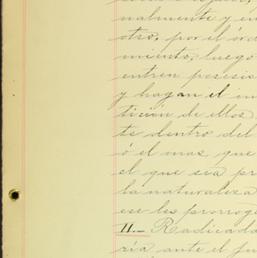 nalmente y en
otro, por el órd
miento; luego
entren
y hagan el in
tición de ellos
te dentro del
ó el mas que
el que sea pr
la naturaleza
ese les prorrog
II.— Radicada
ría ante el ju